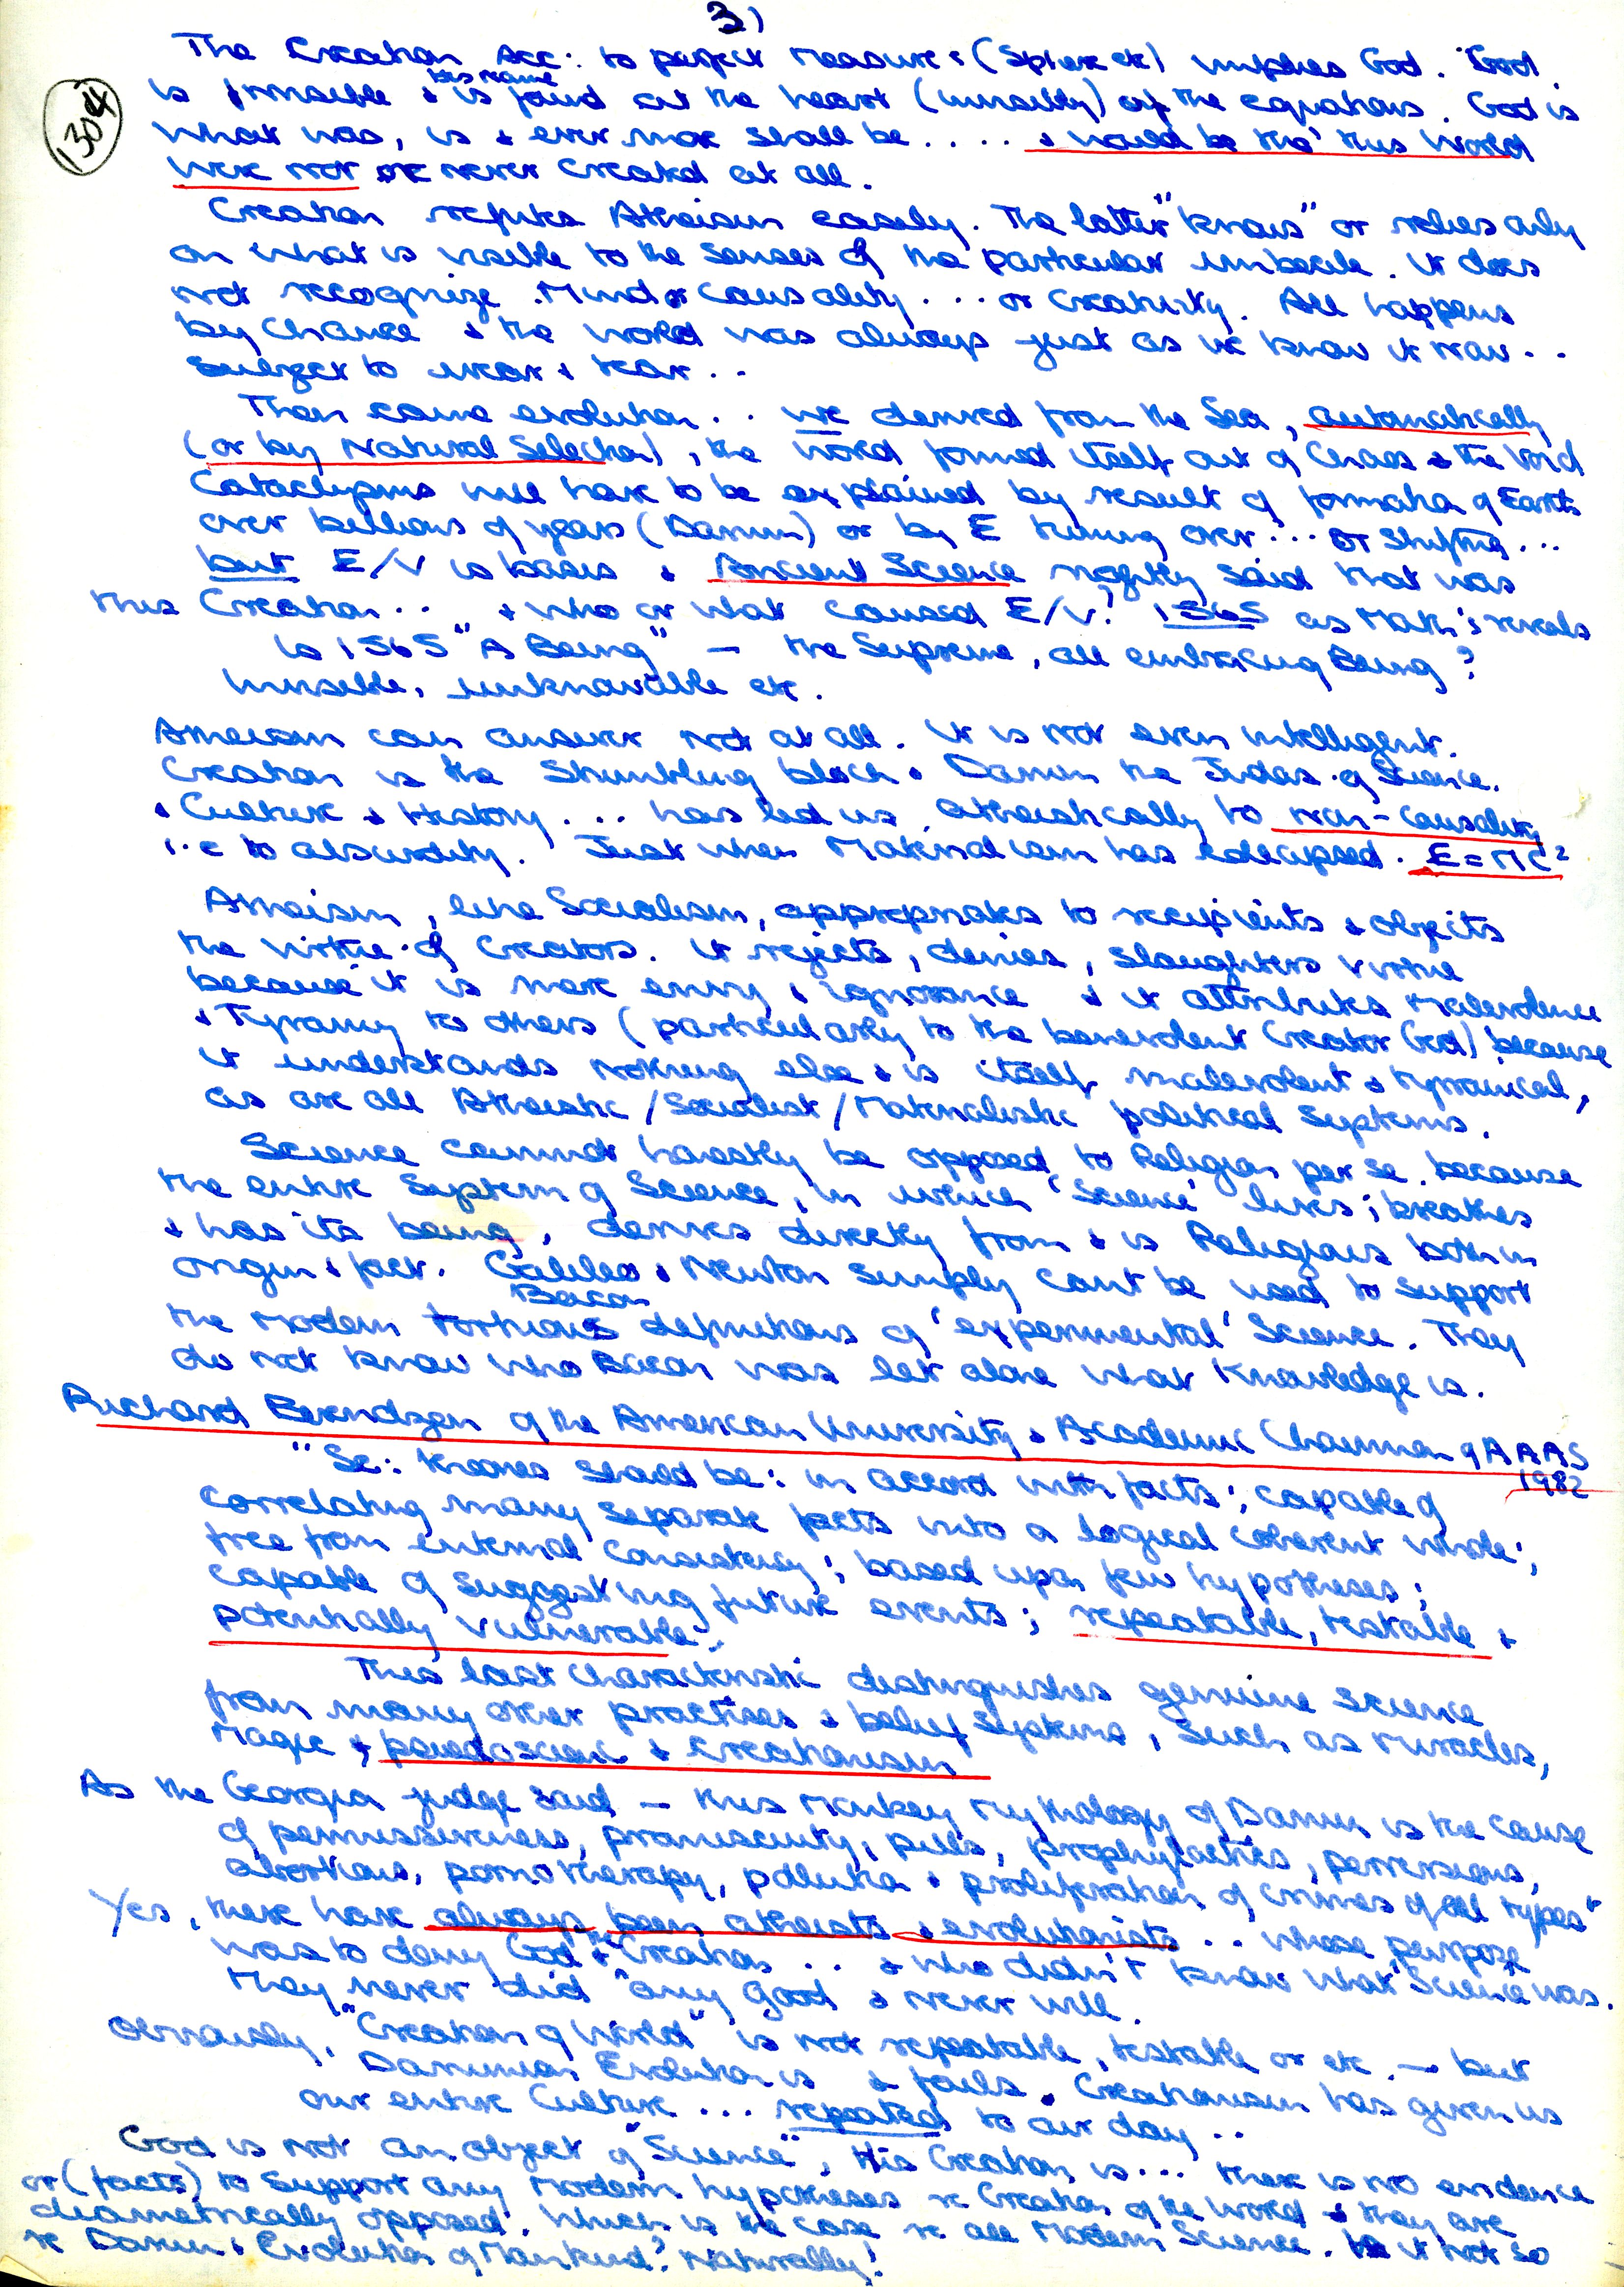 3)
1304
The Creation Acc: to perfect measure: (Sphere etc) implies God. God
his name
is invisible & is found at the heart (invisibly) of the equations. God is
what was, is & ever more shall be.... & would be tho' this World
were not or never created at all.
Creation refutes Atheism easily. The latter "knows" or relies only
on what is visible to the senses of the particular imbecile. It does
not recognize Mind or Causality... or Creativity. All happens
by chance & the world was always just as we know it now..
subject to wear & tear..
Then came evolution.. we derived from the Sea, automatically
(or by Natural Selection), the World formed itself out of Chaos & the Void
Cataclysms will have to be explained by result of formation of Earth
over billions of years (Darwin) or by E turning over... or shifting...
but E/V is basis & Ancient Science rightly said that was
thus Creation.. & who or what caused E/V? 1565 as Math: reveals
Is 1565 "A Being" — the Supreme, all embracing Being?
Invisible, unknowable etc.
Atheism can answer not at all. It is not even intelligent.
Creation is the Stumbling block. Darwin the Judas of Science.
& Culture & History... has led us atheistically to non-causality
i.e to absurdity. Just when Materialism has collapsed. E=MC²
Atheism, like Socialism, appropriates to recipients & objects
the virtue of Creators. It rejects, denies, slaughters virtue
because it is mere envy & ignorance & it attributes Malevolence
& Tyranny to others (particularly to the benevolent Creator God) because
it understands nothing else & is itself malevolent & tyrannical,
as are all Atheistic/Socialist/Materialistic political Systems.
Science cannot honestly be opposed to Religion per se because
the entire System of Science, in which 'Science' lives; breathes
& has its being, derives directly from & is Religious both in
origin & fact. Galileo & Newton simply can't be used to support
Bacon
the Modern tortuous definitions of 'experimental' Science. They
do not know who Bacon was let alone what Knowledge is.
Richard Berendzen of the American University & Academic Chairman of AAAS
1982
"Sc: theories should be: in accord with facts; capable of
correlating many separate facts into a logical coherent whole;
free from internal consistency; based upon few hypotheses;
capable of suggesting future events; repeatable, testable &
potentially vulnerable".
This last characteristic distinguishes genuine Science
from many other practices & belief systems, such as miracles,
Magic & pseudoscience & Creationism
As the Georgia judge said — this Monkey Mythology of Darwin is the cause
of permissiveness, promiscuity, pills, prophylactics, perversions,
abortions, pornotherapy, pollution & proliferation of crimes of all types"
Yes, there have always been atheists & evolutionists.. whose purpose
was to deny God & Creation... & who didn't know what Science was.
They never did any good & never will.
Obviously, "Creation of World" is not repeatable, testable or etc — but
Darwinian Evolution is & fails. Creationism has given us
our entire Culture... repeated to our day..
God is not an object of "Science", His Creation is... there is no evidence
or (facts) to support any Modern hypotheses re Creation of the World & they are
diametrically opposed. Which is the case re all Modern Science. Is it not so
re Darwin & Evolution of Mankind? Naturally!